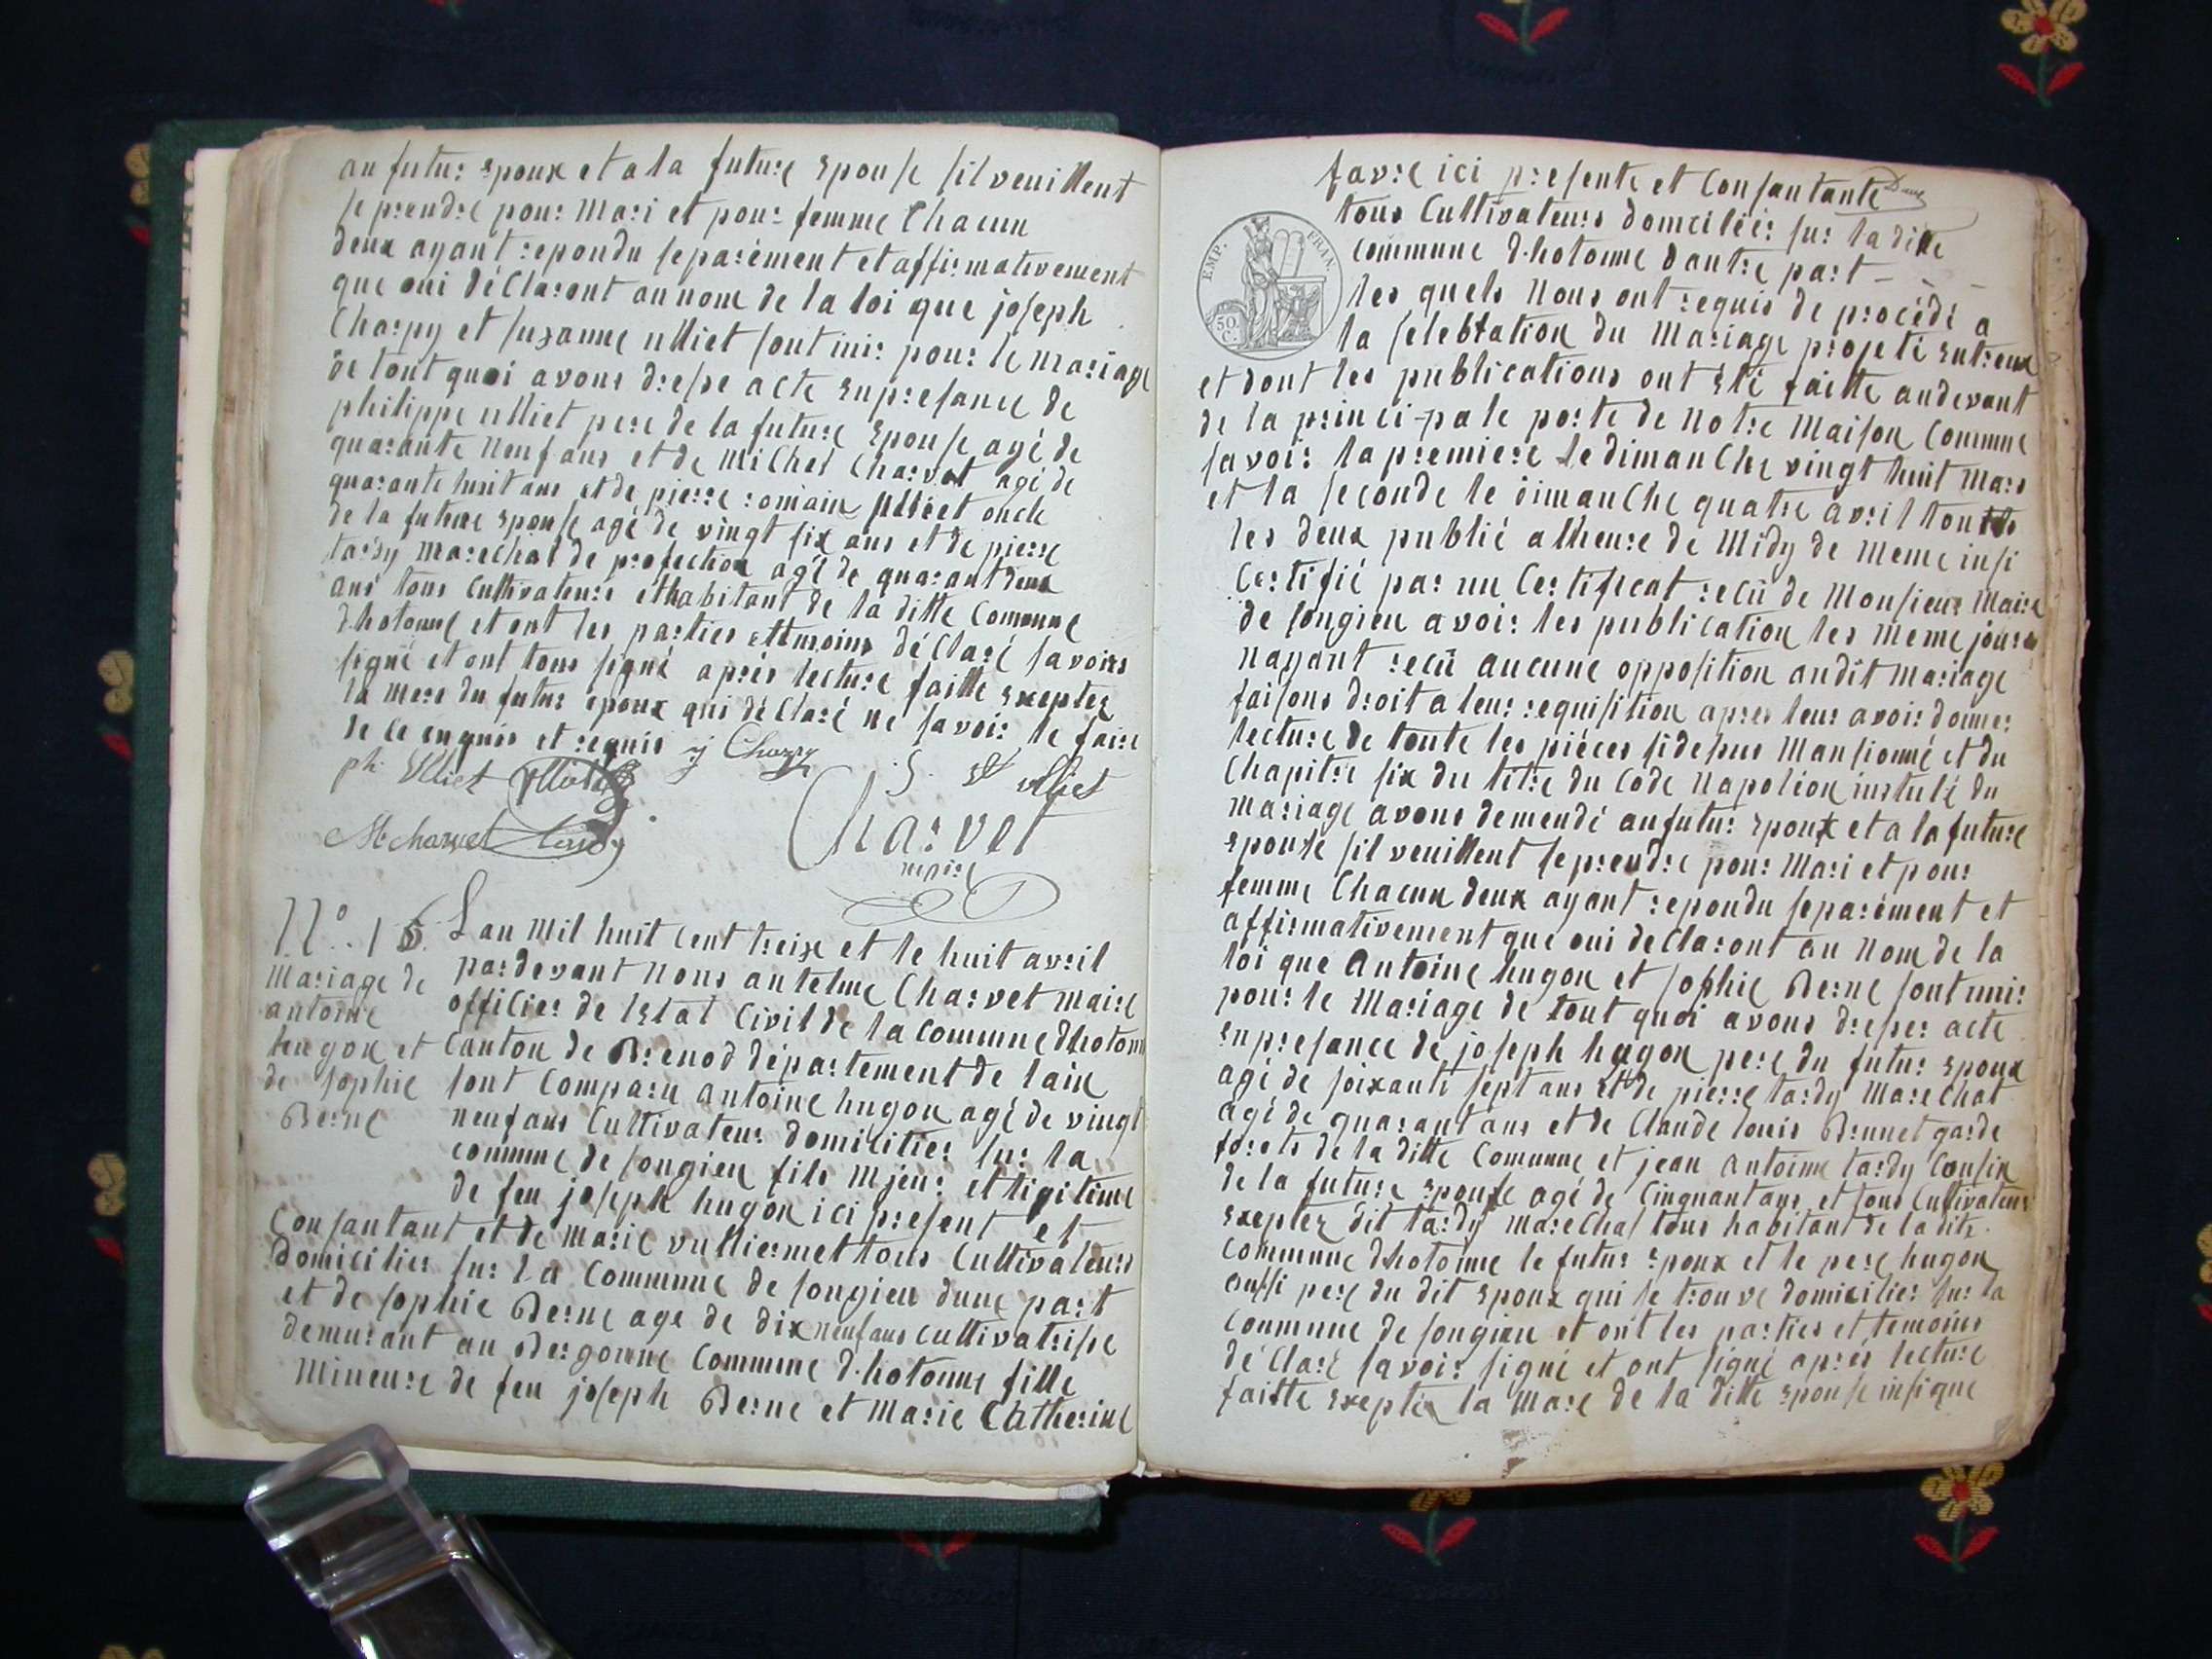 au futur epoux et a la future epouse sil veuillent
se prendre pour Mari et pour femme Chacun
deux ayant repondu separément et affirmativement
que oui déClaront au nom de la loi que joseph
Charpy et suzanne ulliet sont unis pour le mariage
de tout quoi avons drepse acte enpresance de
philippe ulliet pere de la future epouse agé de
quarante neuf ans et de Michel Charvet agé de
quarante huit ans et de pierre romain ulliet oncle
de la future epouse agé de vingt six ans et de pierre
tardy mareChal de profection agé de quarant deux
ans tous Cultivateurs et habitant de la ditte Commune
d.hotonne et ont les parties et temoins déClaré savoirs
signé et ont tous signé aprés lecture faitte exepter
la mere du futur epoux qui déClaré ne savoir le faire
de ce enquis et requis j Charpy
ph Ulliet S. Ulliet
M charvet tardy Charvet
maire
N°. 15. Lan Mil huit Cent treize et le huit avril
Mariage de pardevant Nous antelme Charvet maire
antoine officier de lEtat Civil de la Commune dhotonne
hugon et Canton de Brenod département de lain
de sophie sont Comparu antoine hugon agé de vingt
Berne neuf ans Cultivateur domicilier sur la
commune de songieu fils Mjeur et ligitime
de feu joseph hugon ici present et
Consantant et de Marie vulliermet tous Cultivateurs
domicilier sur la Commune de songieu dune part
et de sophie Berne age de dix neuf ans cultivatrise
demurant au Bergonne Commune d.hotonne fille
Mineure de feu joseph Berne et Marie Catherine
favre ici presente et Consantante
tous Cultivateurs domciliér sur la ditte
commune d.hotonne dautre part
EMP. FRAN.
50 C.
les quels Nous ont requis de procédé a
la selebration du Mariage projeté entreux
et dont les publications ont été faitte audevant
de la princi-pale porte de Notre Maison Commune
savoir la premiere le dimanChe vingt huit Mars
et la seconde le dimanChe quatre avril toutes
les deux publié a lheure de Midy de Meme insi
Certifié par un Certificat reçu de Monsieur Maire
de songieu avoir les publication les meme jours
Nayant reçu aucune opposition audit mariage
faisons droit a leur requisition apres leur avoir donner
lecture de toute les piéces sidepus Mansionné et du
Chapitre six du titre du Code Napoléon instulé du
mariage avons demendé au futur epoux et a la future
epouse sil veuillent se prendre pour Mari et pour
femme Chacun deux ayant repondu separément et
affirmativement que oui deClaront au Nom de la
loi que Antoine hugon et sophie Berne sont unir
pour le Mariage de tout quoi avons dreser acte
enpresance de joseph hugon pere du futur epoux
agé de soixante sept ans et de pierre tardy MareChal
agé de quarant ans et de Claude louis Brunet garde
forets de la ditte Commune et jean antoine tardy Cousin
de la future epouse agé de Cinquant ans et tous Cultivateurs
exepter dit tardy mareChal tous habitant de la dite
commune dhotonne le futur epoux et le pere hugon
aussi pere du dit epoux qui se trouve domicilier sur la
Commune de songieu et ont les parties et temoins
déClaré savoir signé et ont signé aprés lecture
faitte exepter la Mare de la ditte epouse insique